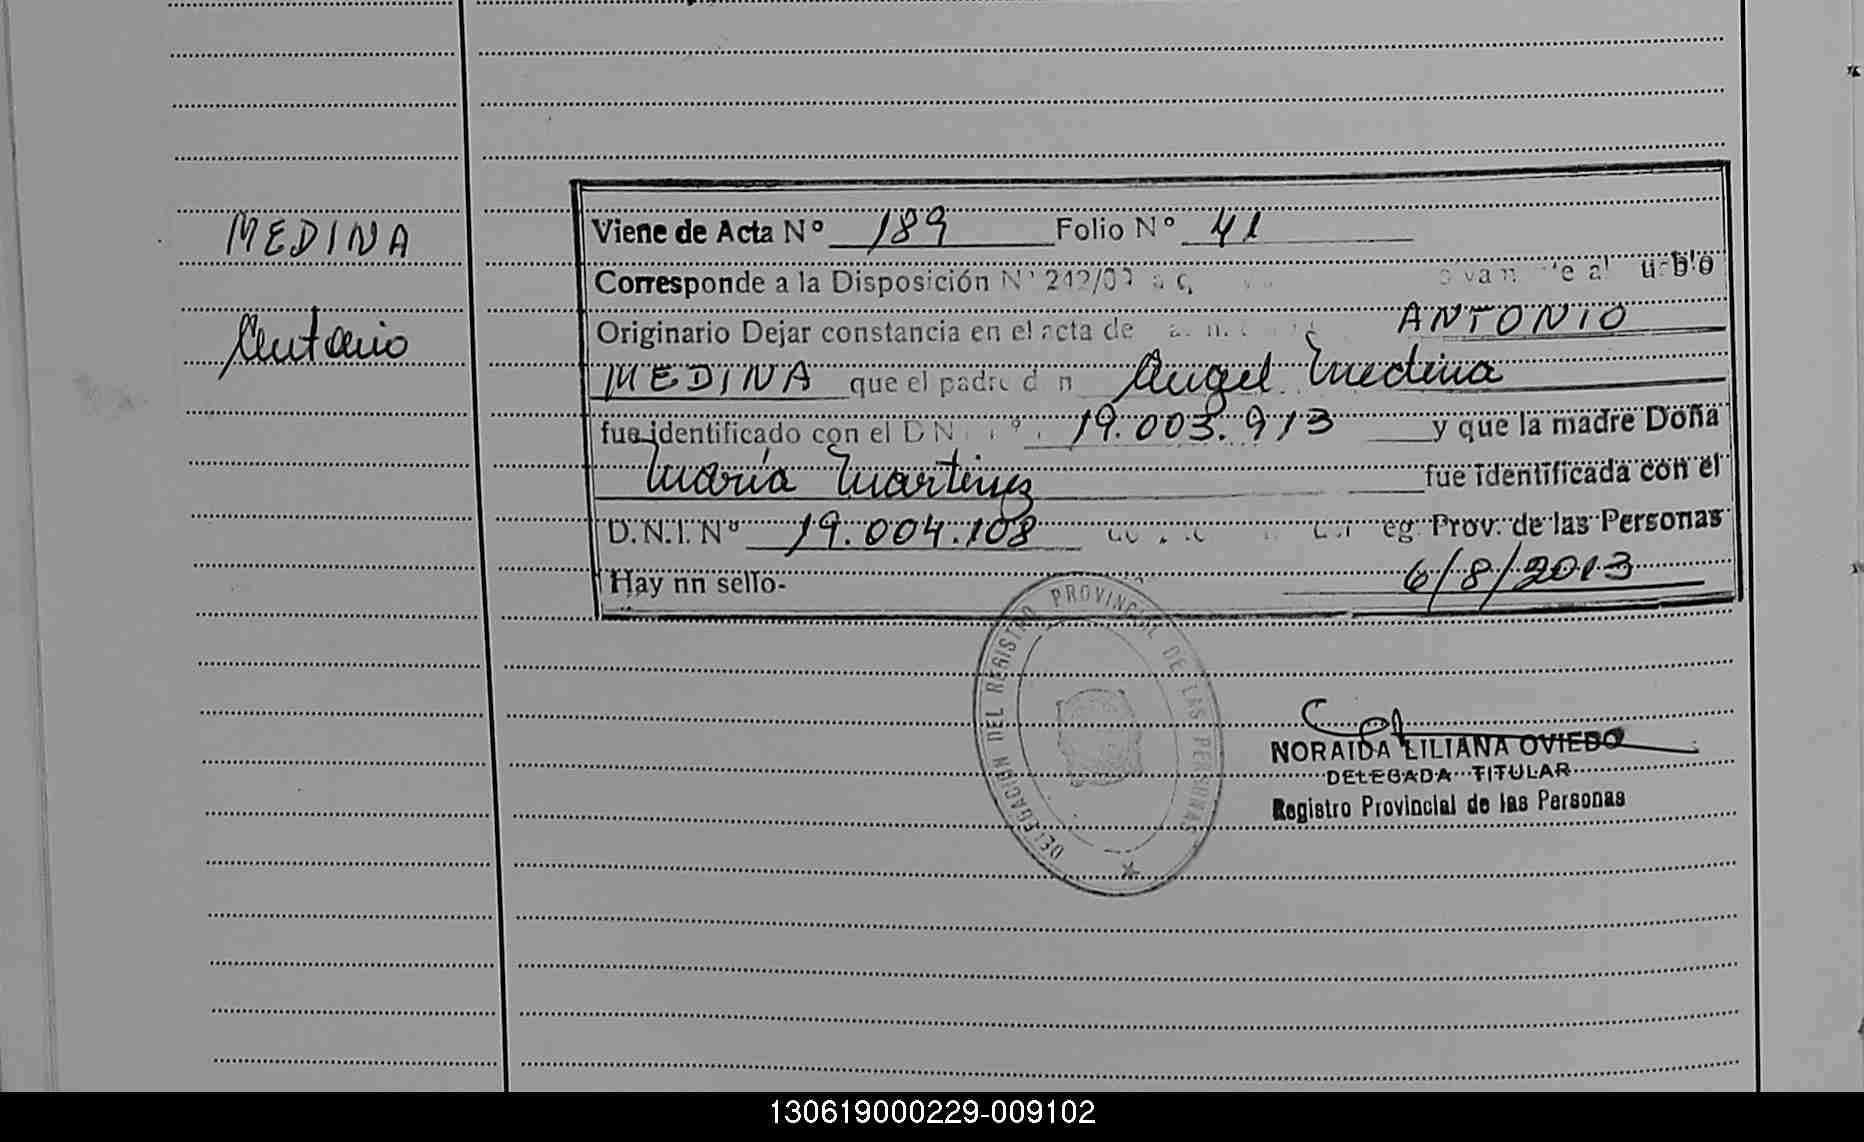 MEDINA
Antonio
Viene de Acta Nº 189 Folio Nº 41
Corresponde a la Disposición Nº 242/0
Originario Dejar constancia en el acta de ANTONIO
MEDINA que el padre Angel Medina
fue identificado con el D N 19.003.913 y que la madre Doña
María Martinez fue identificada con el
D.N.I. Nº 19.004.108 Prov. de las Personas
Hay nn sello- 6/8/2013
DELEGACION DEL REGISTRO PROVINCIAL DE LAS PERSONAS
NORAIDA LILIANA OVIEDO
DELEGADA TITULAR
Registro Provincial de las Personas
130619000229-009102